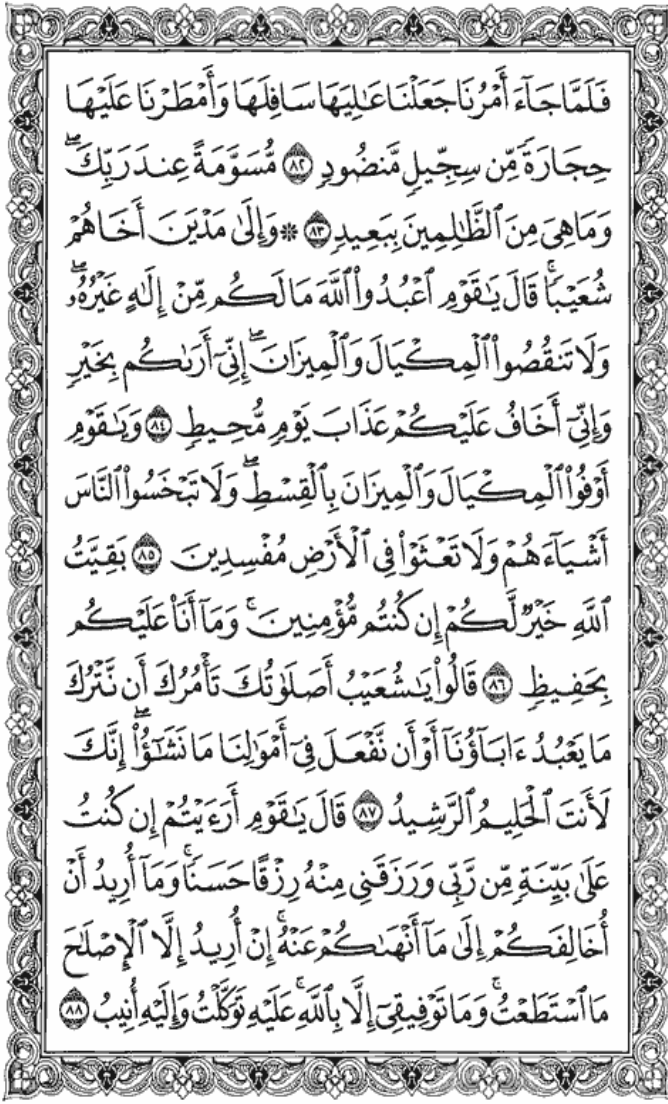 فَلَمَّا جَآءَ أَمْرُنَا جَعَلْنَا عَٰلِيَهَا سَافِلَهَا وَأَمْطَرْنَا عَلَيْهَا
حِجَارَةً مِّن سِجِّيلٍ مَّنضُودٍ ﴿٨٢﴾ مُّسَوَّمَةً عِندَ رَبِّكَۖ
وَمَا هِىَ مِنَ ٱلظَّٰلِمِينَ بِبَعِيدٍ ﴿٨٣﴾ ۞ وَإِلَىٰ مَدْيَنَ أَخَاهُمْ
شُعَيْبًاۚ قَالَ يَٰقَوْمِ ٱعْبُدُوا۟ ٱللَّهَ مَا لَكُم مِّنْ إِلَٰهٍ غَيْرُهُۥۖ
وَلَا تَنقُصُوا۟ ٱلْمِكْيَالَ وَٱلْمِيزَانَۖ إِنِّىٓ أَرَىٰكُم بِخَيْرٍ
وَإِنِّىٓ أَخَافُ عَلَيْكُمْ عَذَابَ يَوْمٍ مُّحِيطٍ ﴿٨٤﴾ وَيَٰقَوْمِ
أَوْفُوا۟ ٱلْمِكْيَالَ وَٱلْمِيزَانَ بِٱلْقِسْطِۖ وَلَا تَبْخَسُوا۟ ٱلنَّاسَ
أَشْيَآءَهُمْ وَلَا تَعْثَوْا۟ فِى ٱلْأَرْضِ مُفْسِدِينَ ﴿٨٥﴾ بَقِيَّتُ
ٱللَّهِ خَيْرٌ لَّكُمْ إِن كُنتُم مُّؤْمِنِينَۚ وَمَآ أَنَا۠ عَلَيْكُم
بِحَفِيظٍ ﴿٨٦﴾ قَالُوا۟ يَٰشُعَيْبُ أَصَلَوٰتُكَ تَأْمُرُكَ أَن نَّتْرُكَ
مَا يَعْبُدُ ءَابَآؤُنَآ أَوْ أَن نَّفْعَلَ فِىٓ أَمْوَٰلِنَا مَا نَشَٰٓؤُا۟ۖ إِنَّكَ
لَأَنتَ ٱلْحَلِيمُ ٱلرَّشِيدُ ﴿٨٧﴾ قَالَ يَٰقَوْمِ أَرَءَيْتُمْ إِن كُنتُ
عَلَىٰ بَيِّنَةٍ مِّن رَّبِّى وَرَزَقَنِى مِنْهُ رِزْقًا حَسَنًاۚ وَمَآ أُرِيدُ أَنْ
أُخَالِفَكُمْ إِلَىٰ مَآ أَنْهَىٰكُمْ عَنْهُۚ إِنْ أُرِيدُ إِلَّا ٱلْإِصْلَٰحَ
مَا ٱسْتَطَعْتُۚ وَمَا تَوْفِيقِىٓ إِلَّا بِٱللَّهِۚ عَلَيْهِ تَوَكَّلْتُ وَإِلَيْهِ أُنِيبُ ﴿٨٨﴾